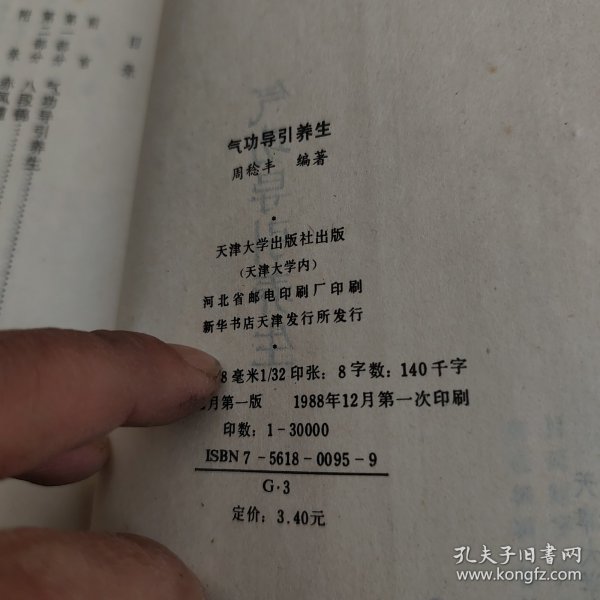 目录
前言
第一部分 气功导引养生
第二部分 八段锦
附录
气功导引养生
周稔丰 编著
天津大学出版社出版
(天津大学内)
河北省邮电印刷厂印刷
新华书店天津发行所发行
8毫米1/32印张: 8字数: 140千字
月第一版 1988年12月第一次印刷
印数: 1-30000
ISBN 7-5618-0095-9
G·3
定价: 3.40元
孔夫子旧书网
www.kongfz.com